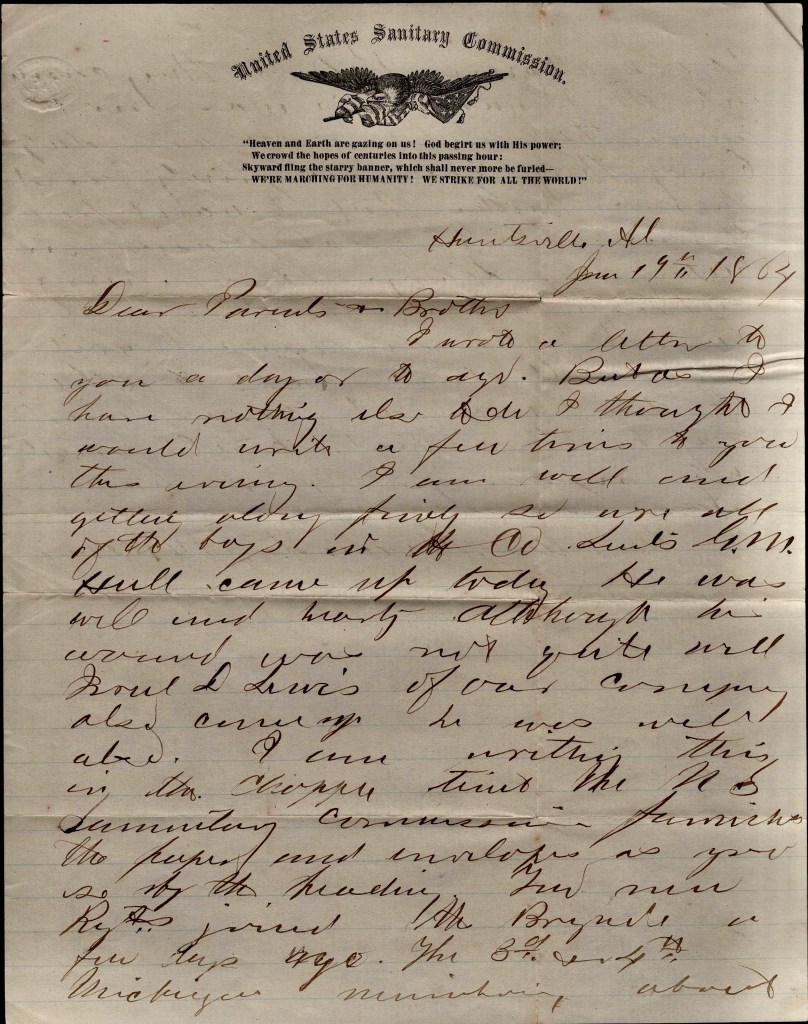 United States Sanitary Commission.
"Heaven and Earth are gazing on us! God begirt us with His power;
We crowd the hopes of centuries into this passing hour:
Skyward fling the starry banner, which shall never more be furled—
WE'RE MARCHING FOR HUMANITY! WE STRIKE FOR ALL THE WORLD!"
Huntsville Al.
19th 1864
Dear Parents & Broths
I wrote a letter to
you a day or to ago. But as I
have nothing else to do I thought I
would write a few lines to you
this evning. I am well and
getting along finely so are all
of the boys in the Co. Leut G. M.
Hull came up today He was
well and hearty although his
wound was not quite well
D Lewis of our company
also came up he was well
also. I am writing this
in the Chapple tent the U S
Sannitary Commission furnishes
the paper and envelopes as you
se by the heading. Two new
Regts. joined the Brigade a
few days ago. The 3d. & 4th
Michigan numbering about